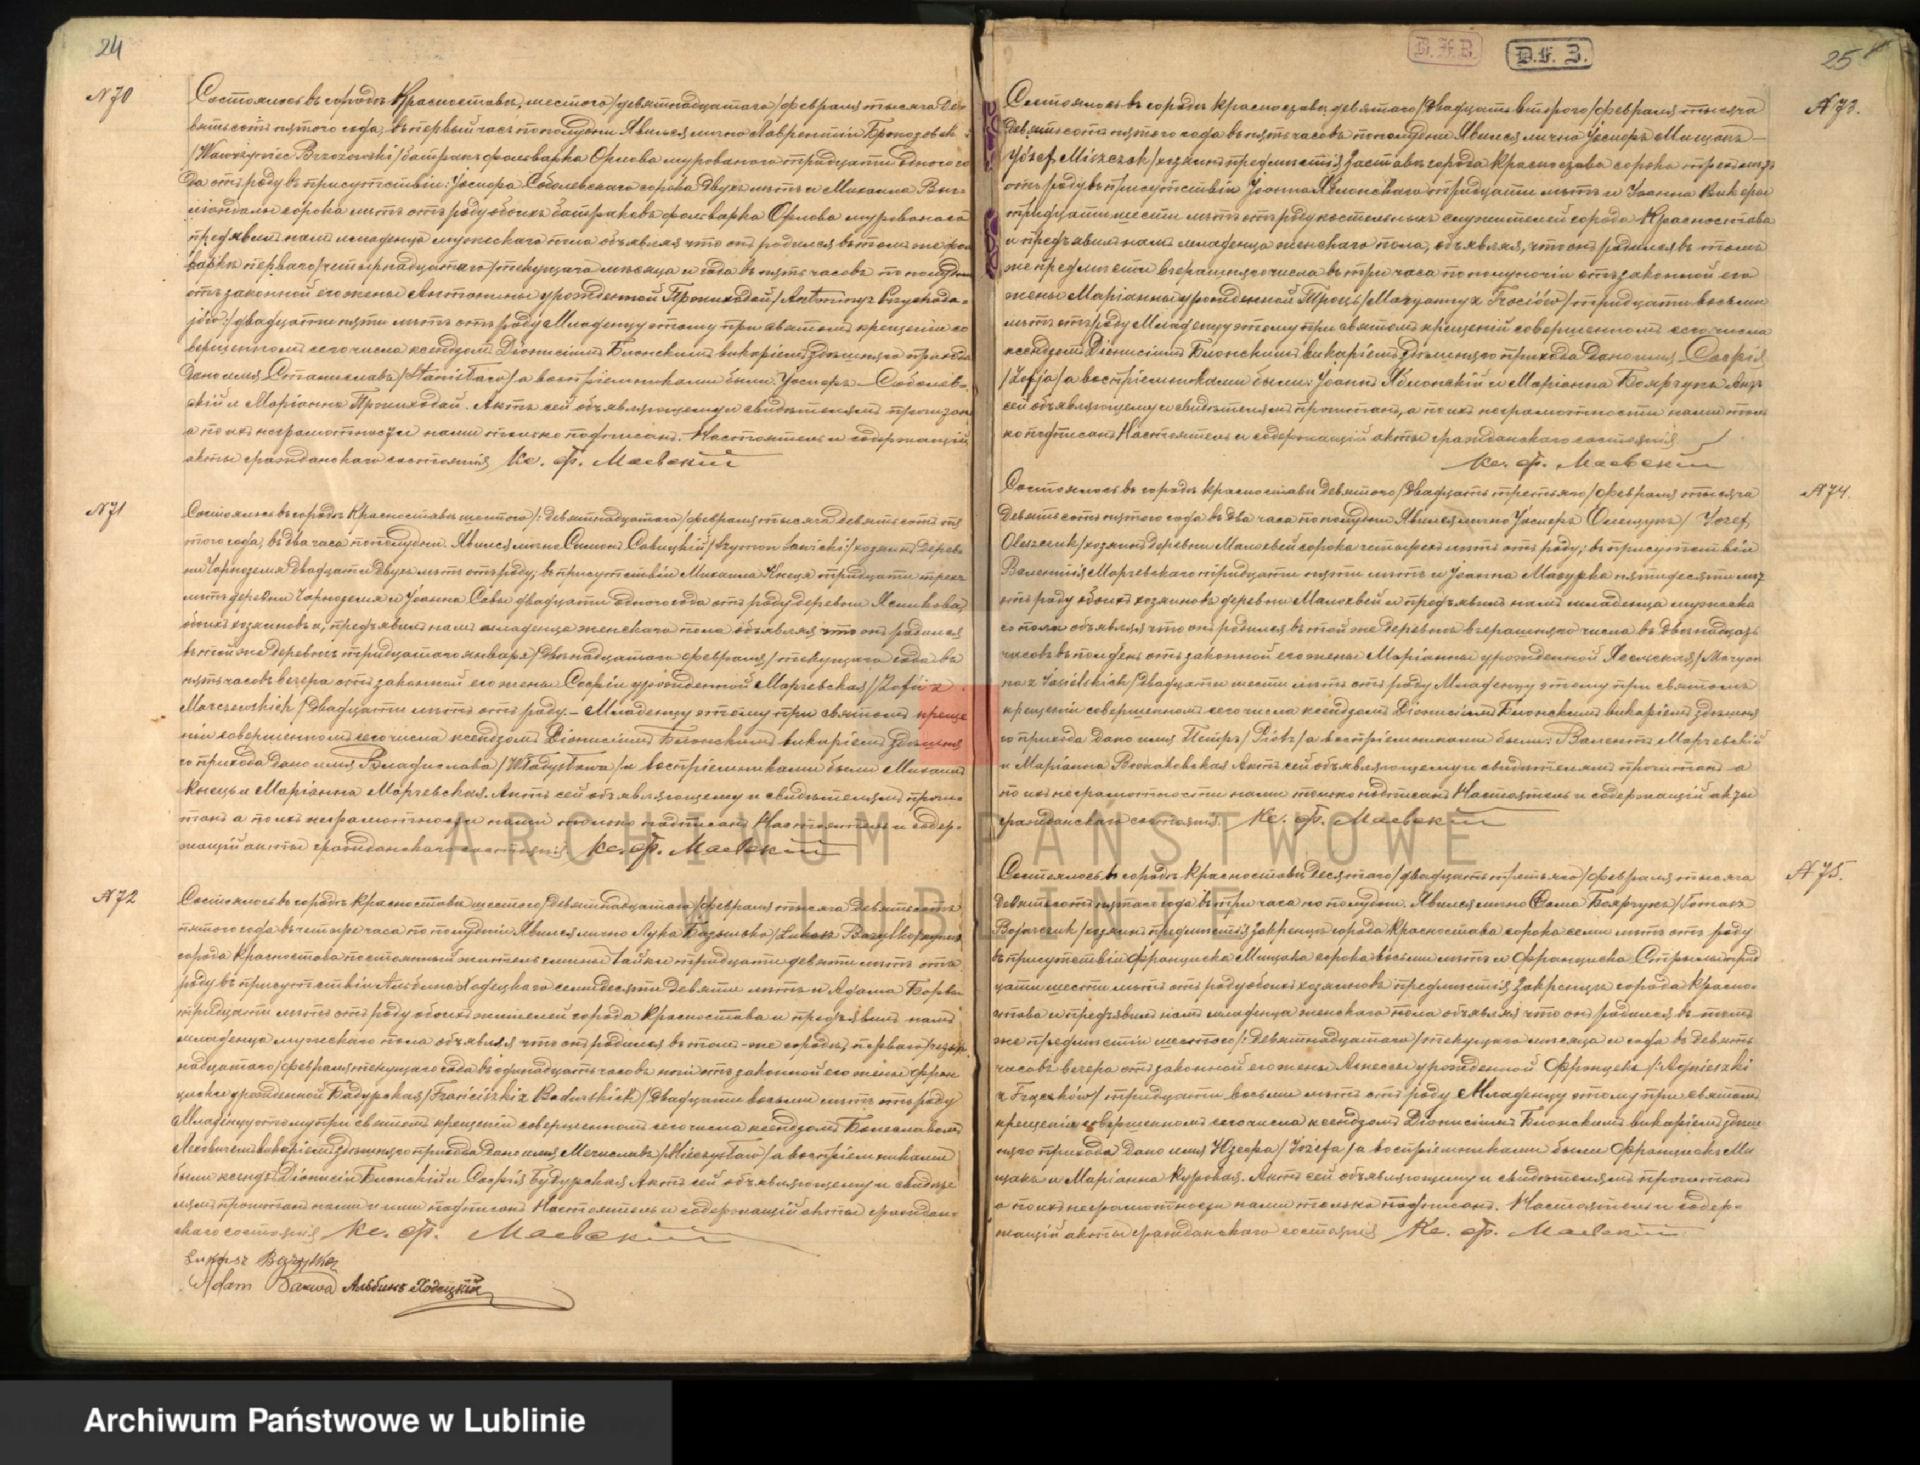 24
N 70
Состоялось въ городѣ Красноставѣ, шестого /девятнадцатаго/ февраля тысяча де-
вятьсотъ пятого года, въ первый часъ пополудни. Явился лично Лаврентій Бржозовскі
/Wawrzyniec Brzozowski/ батракъ фольварка Орлова мурованого тридцати одного го
да отъ роду въ присутствіи: Іосифа Соболевскаго сорока двухъ лѣтъ и Михаила
сорока лѣтъ отъ роду обоихъ батраковъ фольварка Орлова мурованаго
предъявилъ намъ младенца мужескаго пола объявляя что онъ родился въ томъ же фоль
варкѣ перваго /четырнадцатаго/ текущаго мѣсяца и года въ пять часовъ по полудни
отъ законной его жены Антонины урожденной Пржиходзей /Antoniny z Przychodze-
jów/ двадцати пяти лѣтъ отъ роду Младенцу этому при святомъ крещеніи со
вершенномъ сего числа ксендзомъ Діонисіемъ Блонскимъ викаріемъ здѣшняго прихода
дано имя Станиславъ /Stanisław/ а воспріемниками были: Іосифъ Соболев-
скій и Маріанна Пржиходзей. Актъ сей объявляющему и свидѣтелямъ прочитанъ
а по ихъ неграмотности нами только подписанъ. Настоятель и содержащій
акты гражданскаго состоянія Кс. Ф. Маевскій
N 71
Состоялось въ городѣ Красноставѣ шестого /: девятнадцатаго / февраля тысяча девятьсотъ пя
того года, въ два часа пополудни. Явился лично Симонъ Савицкій /Szymon Sawicki/ хозяинъ дерев
ни Чарноземъ двадцати двухъ лѣтъ отъ роду; въ присутствіи Михаила Кнеця тридцати трехъ
лѣтъ деревни Чарноземъ и Іоанна Савы двадцати одного года отъ роду деревни Ясликова,
обоихъ хозяиновъ и, предъявилъ намъ младенца женскаго пола объявляя что онъ родился
въ той же деревнѣ тридцатаго января /двѣнадцатаго февраля/ текущаго года въ
пять часовъ вечера отъ законной его жены Софіи урожденной Марчевская /Zofii z
Marczewskich/ двадцати лѣтъ отъ роду. – Младенцу этому при святомъ креще
ніи совершенномъ сего числа ксендзомъ Діонисіемъ Блонскимъ викаріемъ здѣшня
го прихода дано имя Владислава /Władysława/ а воспріемниками были Михаилъ
Кнець и Маріанна Марчевская. Актъ сей объявляющему и свидѣтелямъ прочи-
танъ а по ихъ неграмотности нами только подписанъ Настоятель и содер-
жащій акты гражданскаго состоянія Кс. Ф. Маевскій
N 72
Состоялось въ городѣ Красноставѣ шестого /девятнадцатаго/ февраля тысяча девятьсотъ
пятого года въ четыре часа по полудни Явился лично Лука Базылько /Łukasz Bazylko/
города Красностава постоянный житель гмины Чайки тридцати девяти лѣтъ отъ
роду въ присутствіи Альбина Ходецкаго семидесяти девяти лѣтъ и Адама
тридцати лѣтъ отъ роду обоихъ жителей города Красностава и предъявилъ намъ
младенца мужескаго пола объявляя что онъ родился въ томъ-же городѣ, перваго /четыр
надцатаго/ февраля текущаго года въ одинадцать часовъ ночи отъ законной его жены Фран
цишки урожденной Бадурская /Franciszki z Badurskich/ двадцати восьми лѣтъ отъ роду
Младенцу этому при святомъ крещеніи совершенномъ сего числа ксендзомъ Болеславомъ
викаріемъ здѣшняго прихода дано имя Мечиславъ /Mieczysław/ а воспріемниками
были ксендзъ Діонисій Блонскій и Софія Бадурская Актъ сей объявляющему и свидѣте
лямъ прочитанъ нами и ими подписанъ Настоятель и содержащій акты граждан-
скаго состоянія Кс. Ф. Маевскій
Łukasz Bazylko
Adam Альбинъ Ходецкій
D.F.B. D.F.B.
25
N 73.
Состоялось въ городѣ Красноставѣ девятаго /двадцать второго/ февраля тысяча
девятьсотъ пятаго года въ пять часовъ пополудни Явился лично Іосифъ Мищакъ
/Józef Miszczak/ хозяинъ предмѣстія Заставе города Красностава сорока трехъ лѣтъ
отъ роду въ присутствіи Іоанна Яблонскаго тридцати лѣтъ и Іоанна
тридцати шести лѣтъ отъ роду костельныхъ служителей города Красностава
и предъявилъ намъ младенца женскаго пола, объявляя, что онъ родился въ томъ
же предмѣстіи вчерашняго числа въ три часа пополуночи отъ законной его
жены Маріанны урожденной Троць /Maryanny z Trociów/ тридцати восьми
лѣтъ отъ роду Младенцу этому при святомъ крещеніи совершенномъ сего числа
ксендзомъ Діонисіемъ Блонскимъ викаріемъ здѣшняго прихода дано имя Софія
/Zofja/ а воспріемниками были: Іоаннъ Яблонскій и Маріанна Боярчукъ Актъ
сей объявляющему и свидѣтелямъ прочитанъ, а по ихъ неграмотности нами толь
ко подписанъ Настоятель и содержащій акты гражданскаго состоянія
Кс. Ф. Маевскій
N 74.
Состоялось въ городѣ Красноставѣ девятаго /двадцать третьяго/ февраля тысяча
девятьсотъ пятаго года въ два часа пополудни Явился лично Іосифъ Олещукъ / Józef
Oleszczuk/ хозяинъ деревни Малохвей сорока четырехъ лѣтъ отъ роду; въ присутствіи
Валентія Марчевскаго тридцати пяти лѣтъ и Іоанна Мазурка пятидесяти лѣтъ
отъ роду обоихъ хозяиновъ деревни Малохвей и предъявилъ намъ младенца мужска
го пола объявляя что онъ родился въ той же деревнѣ вчерашняго числа въ двѣнадцать
часовъ въ полдень отъ законной его жены Маріанны урожденной Ясельская /Maryan
na z Jasielskich/ двадцати шести лѣтъ отъ роду Младенцу этому при святомъ
крещеніи совершенномъ сего числа ксендзомъ Діонисіемъ Блонскимъ викаріемъ здѣшня
го прихода дано имя Петръ /Piotr/ а воспріемниками были: Валентій Марчевскій
и Маріанна Возняковская Актъ сей объявляющему и свидѣтелямъ прочитанъ а
по ихъ неграмотности нами только подписанъ Настоятель и содержащій акты
гражданскаго состоянія. Кс. Ф. Маевскій
N 75.
Состоялось въ городѣ Красноставѣ десятаго /двадцать третьяго/ февраля тысяча
девятьсотъ пятаго года въ три часа по полудни. Явился лично Фома Боярчукъ /Tomasz
Bojarczuk/ хозяинъ предмѣстія Закренце города Красностава сорока семи лѣтъ отъ роду
въ присутствіи Франциска Мищака сорока восьми лѣтъ и Франциска трид
цати шести лѣтъ отъ роду обоихъ хозяиновъ предмѣстія Закренце города Красно-
става и предъявилъ намъ младенца женскаго пола объявляя что онъ родился въ томъ
же предмѣстіи шестого /: девятнадцатаго/ текущаго мѣсяца и года въ девять
часовъ вечера отъ законной его жены Агнесы урожденной Фронцекъ /: Agnieszki
z Frączków/ тридцати восьми лѣтъ отъ роду Младенцу этому при святомъ
крещеніи совершенномъ сего числа ксендзомъ Діонисіемъ Блонскимъ викаріемъ здѣш
няго прихода дано имя Юзефа /Józefa/ а воспріемниками были Францискъ Ми
щакъ и Маріанна Куровая. Актъ сей объявляющему и свидѣтелямъ прочитанъ
а по ихъ неграмотности нами только подписанъ. Настоятель и содер-
жащій акты гражданскаго состоянія Кс. Ф. Маевскій
ARCHIWUM PAŃSTWOWE
W LUBLINIE
Archiwum Państwowe w Lublinie